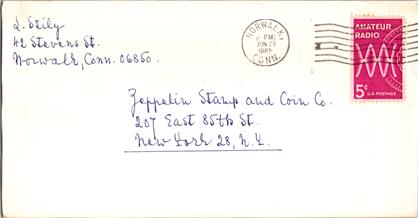 L. Szily
42 Stevens St.
Norwalk, Conn. 06850
NORWALK,
PM
JUN 29
CONN.
AMATEUR
RADIO
5¢ U.S. POSTAGE
Zeppelin Stamp and Coin Co.
207 East 85th St.
New York 28, N.Y.